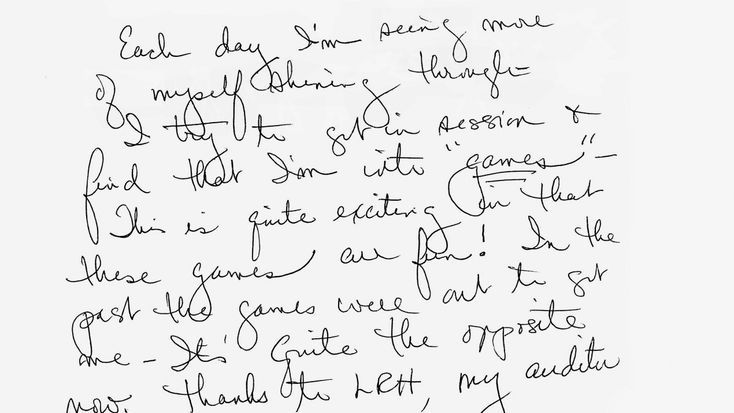 Each day I'm seeing more
of myself shining through –
I try to get in session &
find that I'm into "games" –
This is quite exciting in that
these games are fun! In the
past the games were out to get
me – It's quite the opposite
now. Thanks to LRH, my auditor